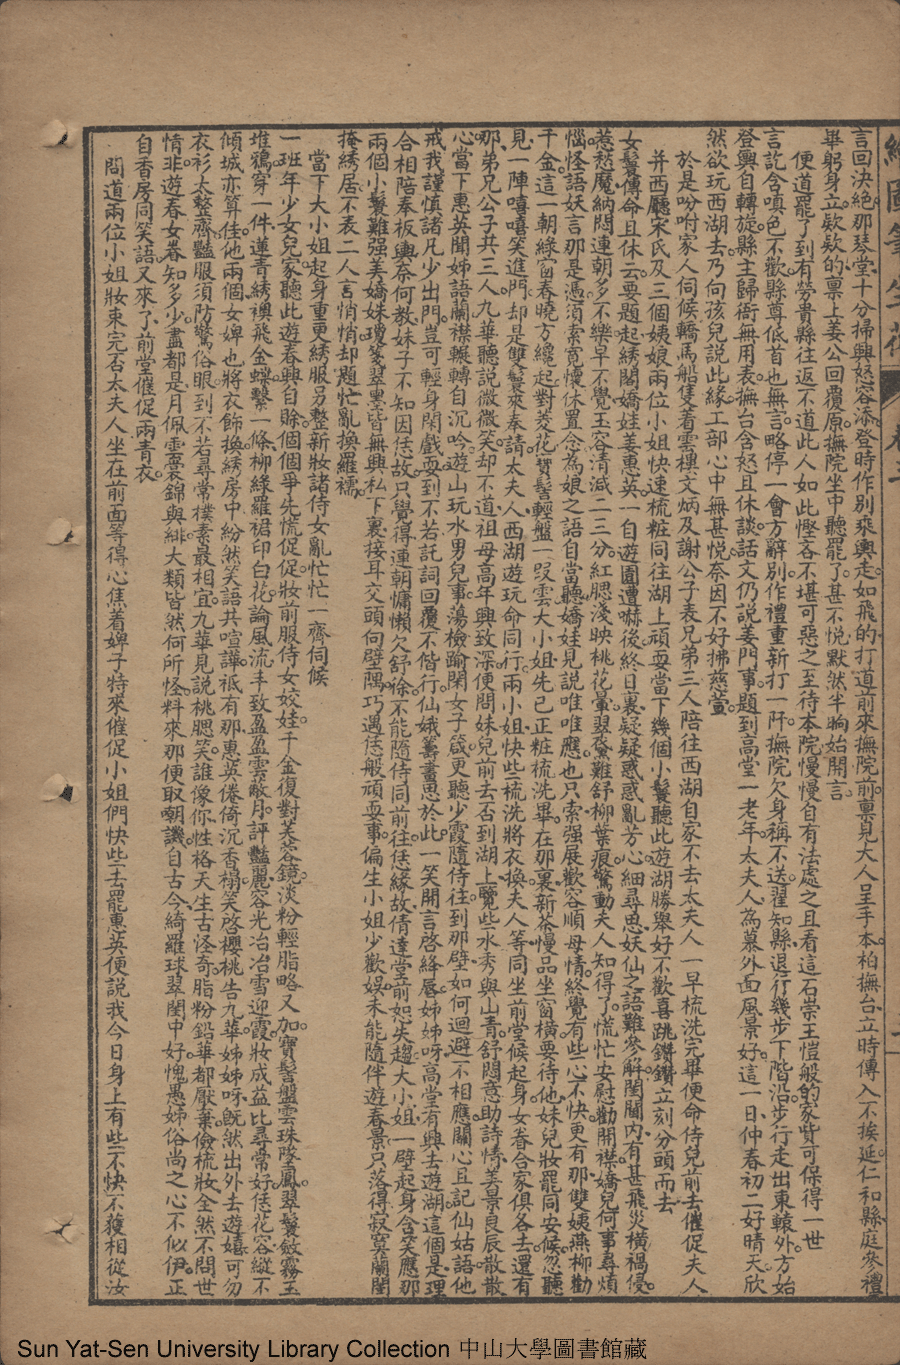 繪圖筆生花 卷三
言回決絕。那琴堂十分掃興怒容添。登時作別乘輿走。如飛的打道前來撫院前。稟見大人呈手本。柏撫台立時傳入不挨延。仁和縣庭參禮
畢躬身立。欵欵的稟上姜公回覆原。撫院坐中聽罷了。甚不悅默然半晌始開言。
便道罷了到有勞貴縣往返。不道此人如此慳吝。不堪可惡之至。待本院慢慢自有法處之。且看這石崇王愷般的家貲可保得一世
言訖含嗔色不歡。縣尊低首也無言。略停一會方辭別。作禮重新打一阡。撫院欠身稱不送。翟知縣退行幾步下階沿。步行走出東轅外。方始
登輿自轉旋。縣主歸衙無用表。撫台含怒且休談。話文仍說姜門事。題到高堂一老年。太夫人為慕外面風景好。這一日仲春初二好晴天。欣
然欲玩西湖去。乃向孩兒說此緣。工部心中無甚悅。奈因不好拂慈萱。
於是吩咐家人伺候轎馬船隻。着雲樸文炳及謝公子表兄弟三人陪往西湖。自家不去。太夫人一早梳洗完畢。便命侍兒前去催促夫人
并西廳宋氏及三個姨娘兩位小姐快速梳粧。同往湖上頑耍。當下幾個小鬟聽此遊湖勝舉。好不歡喜跳鑽鑽立刻分頭而去
女鬟傳命且休云。要題起綉閣嬌娃姜惠英。一自遊園遭嚇後。終日裏疑疑惑惑亂芳心。細尋思妖仙之語難參解。閨閫內有甚飛災橫禍侵。
惹愁魔納悶連朝多不樂。早不覺玉容清減二三分。紅腮淺映桃花暈。翠黛難舒柳葉痕。驚動夫人知得了。慌忙安慰勸開襟。嬌兒何事尋煩
惱。怪語妖言那是憑。須索寬懷休置念。為娘之語自當聽。嬌娃見說唯唯應。也只索强展歡容順母情。終覺有些心不快。更有那雙姨燕柳勸
千金。這一朝綠窗春曉方纔起。對菱花寶髻輕盤一段雲。大小姐先已正粧梳洗畢。在那裏新茶慢品坐窗橫。要待他妹兒妝罷同安候。忽聽
見一陣嘻嘻笑進門。却是雙鬟來奉請。太夫人西湖遊玩命同行。兩小姐快些梳洗將衣換。夫人等同坐前堂候起身。女眷合家俱各去。還有
那弟兄公子共三人。九華聽說微微笑。却不道祖母高年興致深。便問妹兒前去否。到湖上覽些水秀與山青。舒悶意助詩情。美景良辰散散
心。當下惠英聞姊語。蘭襟輾轉自沉吟。遊山玩水男兒事。蕩檢踰閑女子箴。更聽少霞隨侍往。到那壁如何迴避不相應。關心且記仙姑語。他
戒我謹慎諸凡少出門。豈可輕身閑戲耍。到不若託詞回覆不偕行。仙娥籌畫思於此。一笑開言啓絳唇。姊姊呀高堂有興去遊湖。這個是理
合相陪奉板輿。奈何教妹子不知因恁故。只覺得連朝慵懶欠舒徐。不能隨侍同前往。恁緣故倩達堂前恕失趨。大小姐一壁起身含笑應。那
兩個小鬟難强美嬌姝。瓊箋翠墨皆無興。私下裏接耳交頭向壁隅。巧遇恁般頑耍事。偏生小姐少歡娛。未能隨伴遊春景。只落得寂寞蘭閨
掩綉居。不表二人言悄悄。却題忙亂換羅襦。
當下大小姐起身重更綉服。另整新妝。諸侍女亂忙忙一齊伺候
一班年少女兒家。聽此遊春興自賒。個個爭先慌促促。妝前服侍女姣娃。千金復對芙蓉鏡。淡粉輕脂略又加。寶髻盤雲珠墜鳳。翠鬟斂霧玉
堆鴉。穿一件蓮青綉襖飛金蝶。繫一條柳綠羅裙印白花。論風流丰致盈盈雲散月。評豔麗容光冶冶雪迎霞。妝成益比尋常好。恁花容縱不
傾城亦算佳。他兩個女婢也將衣飾換。綉房中紛然笑語共喧譁。祇有那惠英倦倚沉香榻。笑啓櫻桃告九華。姊姊呀既然出外去遊嬉。可勿
衣衫太整齊。豔服須防驚俗眼。到不若尋常樸素最相宜。九華見說桃腮笑。誰像你性格天生古怪奇。脂粉鉛華都厭棄。儉梳妝全然不問世
情非。遊春女眷知多少。盡都是月佩雲裳錦與緋。大類皆然何所怪。料來那便取嘲譏。自古今綺羅珠翠閨中好。愧愚姊俗尚之心不似伊。正
自香房同笑語。又來了前堂催促兩青衣。
問道兩位小姐妝束完否。太夫人坐在前面等得心焦。着婢子特來催促。小姐們快些去罷。惠英便說我今日身上有些不快。不獲相從。汝
Sun Yat-Sen University Library Collection 中山大學圖書館藏